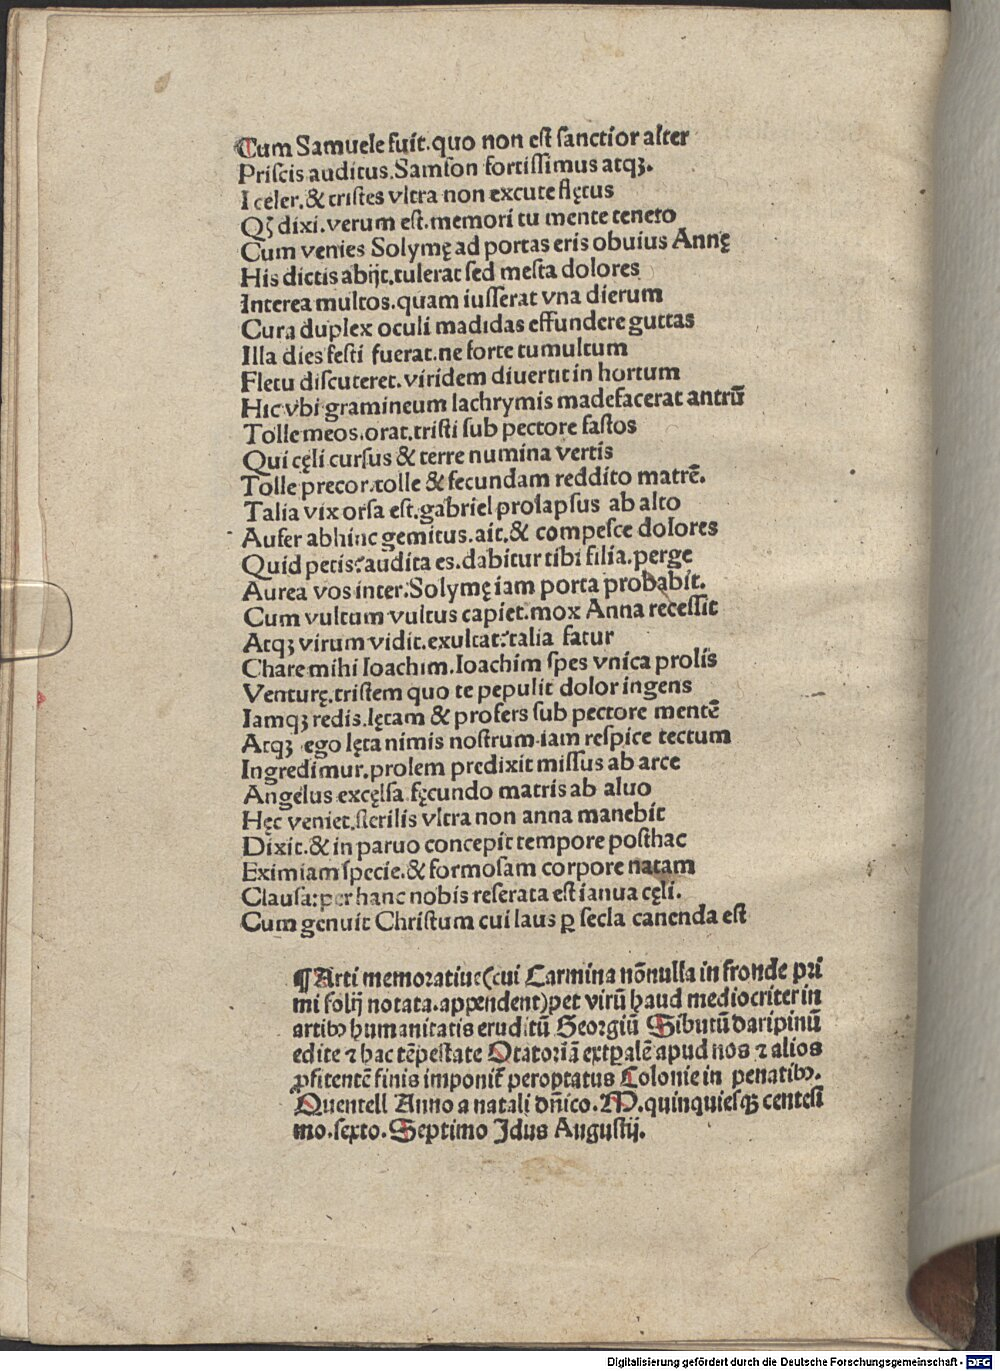 Cum Samuele fuit.quo non eſt ſanctior alter
Priſcis auditus.Samſon fortiſſimus atqꝫ.
I celer.& triſtes vltra non excute flętus
Qꝫ dixi.verum eſt.memori tu mente teneto
Cum venies Solymę ad portas eris obuius Annę
His dictis abijt.tulerat ſed meſta dolores
Interea multos.quam iuſſerat vna dierum
Cura duplex oculi madidas effundere guttas
Illa dies feſti fuerat.ne forte tumultum
Fletu diſcuteret.viridem diuertit in hortum
Hic vbi gramineum lachrymis madefacerat antrū
Tolle meos.orat.triſti ſub pectore faſtos
Qui cęli curſus & terre numina vertis
Tolle precor.tolle & fecundam reddito matrē.
Talia vix orſa eſt.gabriel prolapſus ab alto
Aufer abhinc gemitus.ait.& compeſce dolores
Quid petis?audita es.dabitur tibi filia.perge
Aurea vos inter:Solymę iam porta probabit.
Cum vultum vultus capiet.mox Anna receſſit
Atqꝫ virum vidit.exultat:talia fatur
Chare mihi Ioachim.Ioachim ſpes vnica prolis
Venturę.triſtem quo te pepulit dolor ingens
Iamqꝫ redis.lętam & profers ſub pectore mentē
Atqꝫ ego lęta nimis noſtrum iam reſpice tectum
Ingredimur.prolem predixit miſſus ab arce
Angelus excęlſa.fęcundo matris ab aluo
Hęc veniet.ſterilis vltra non anna manebit
Dixit.& in paruo concepit tempore poſthac
Eximiam ſpecie.& formoſam corpore natam
Clauſa:per hanc nobis reſerata eſt ianua cęli.
Cum genuit Chriſtum cui laus ꝑ ſecla canenda eſt
¶Arti memoratiue(cui Carmina nōnulla in fronde pri
mi folij notata.appendent)pet virū haud mediocriter in
artibꝰ humanitatis eruditū Georgiū Sibutū daripinū
edite ⁊ hac tēpeſtate Oratoriā extꝑalē apud nos ⁊ alios
ꝓfitentē finis imponit̄ peroptatus Colonie in penatibꝰ.
Quentell Anno a natali dn̄ico.M.quinquieſqꝫ centeſi
mo.ſexto.Septimo Idus Auguſtij.
Digitalisierung gefördert durch die Deutsche Forschungsgemeinschaft - DFG